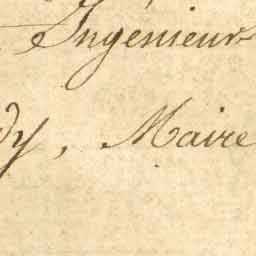 Ingénieur
dy, Maire